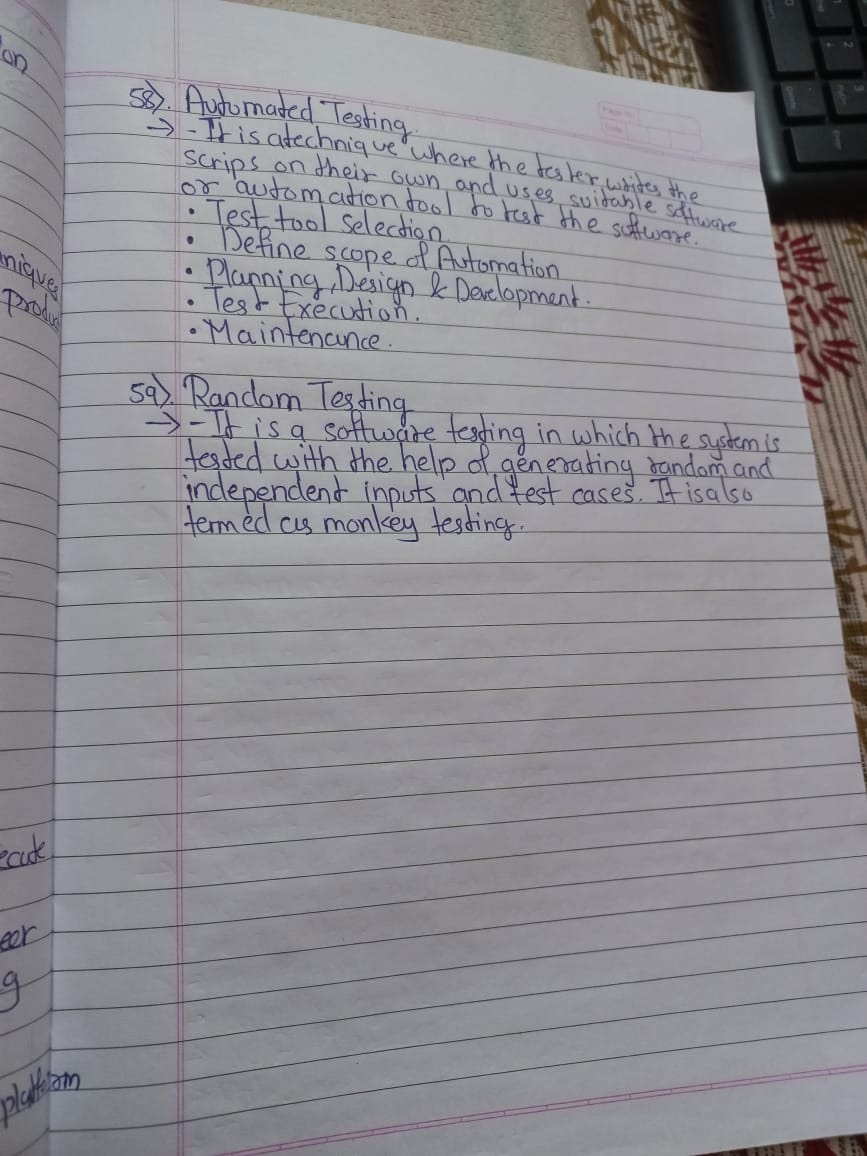 on
niques
produc
ecute
eer
g
platform
58). Automated Testing.
→ - It is a technique where the tester writes the
scrips on their own and uses suitable software
or automation tool to test the software.
• Test tool Selection.
• Define scope of Automation
• Planning, Design & Development.
• Test Execution.
• Maintenance.
59). Random Testing
→ - It is a software testing in which the system is
tested with the help of generating random and
independent inputs and test cases. It is also
termed as monkey testing.